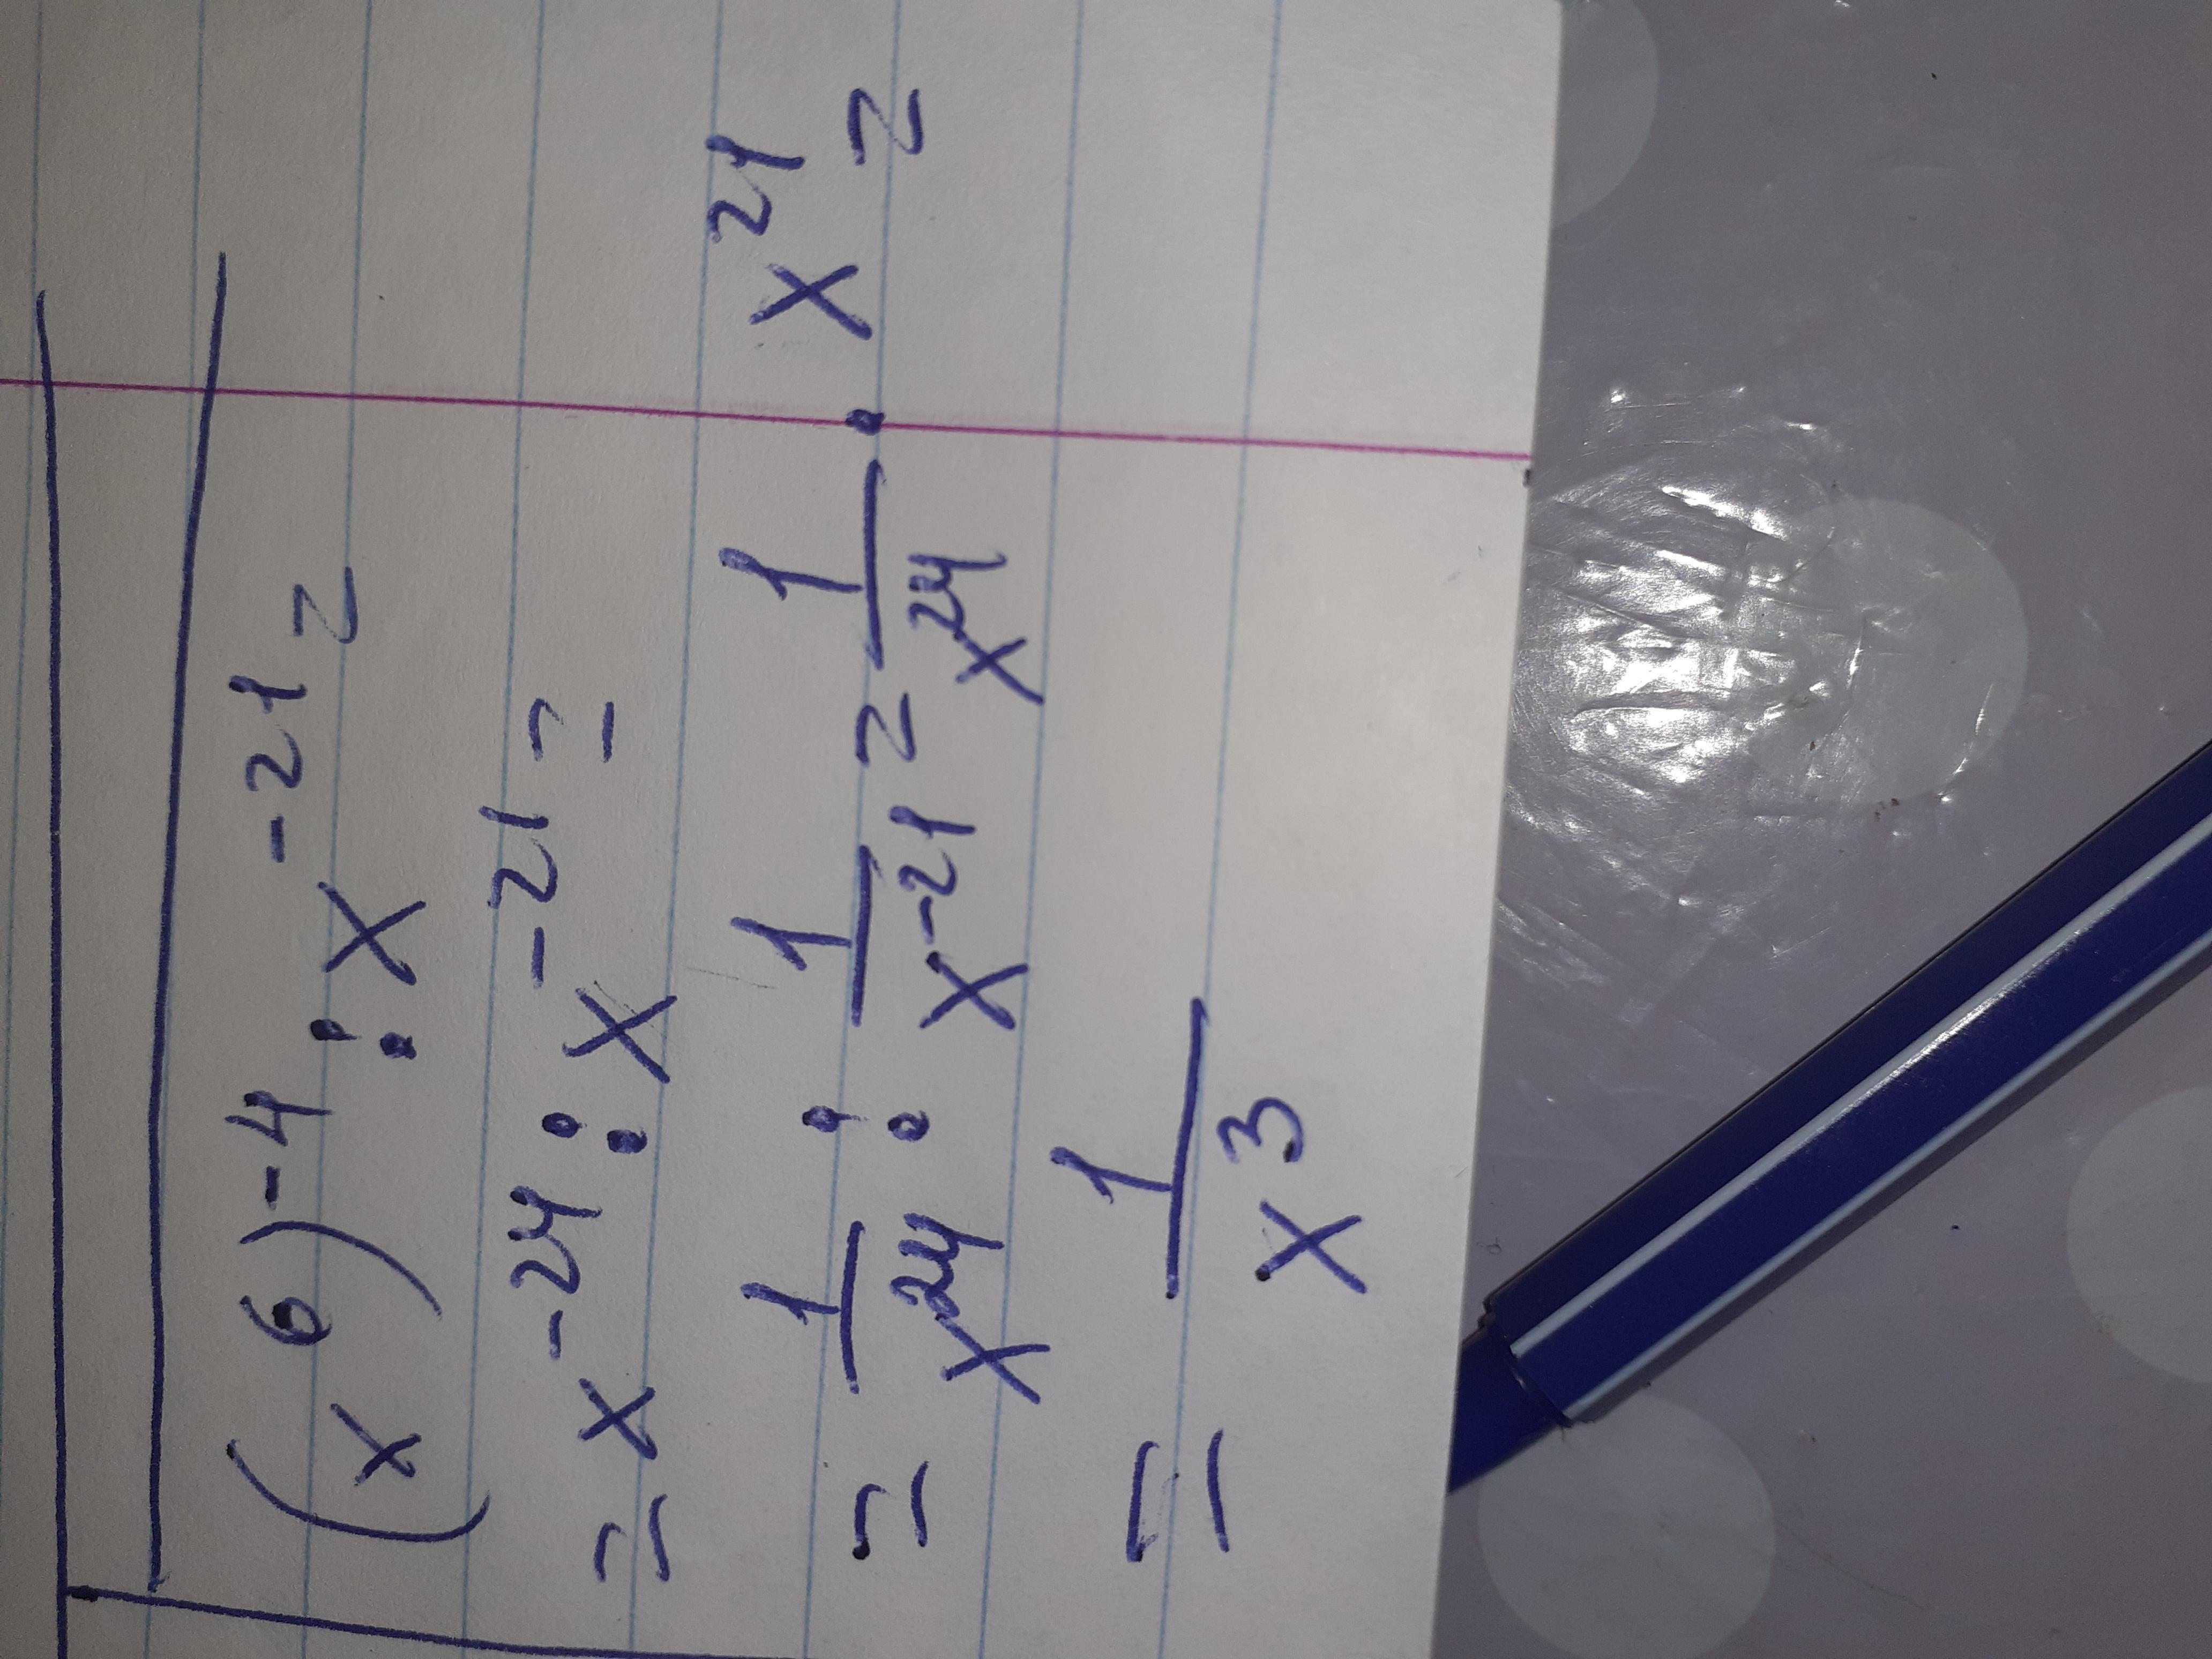 (x⁶)⁻⁴ : x⁻²¹ =
= x⁻²⁴ : x⁻²¹ =
= 1/x²⁴ : 1/x⁻²¹ = 1/x²⁴ · x²¹ =
= 1/x³